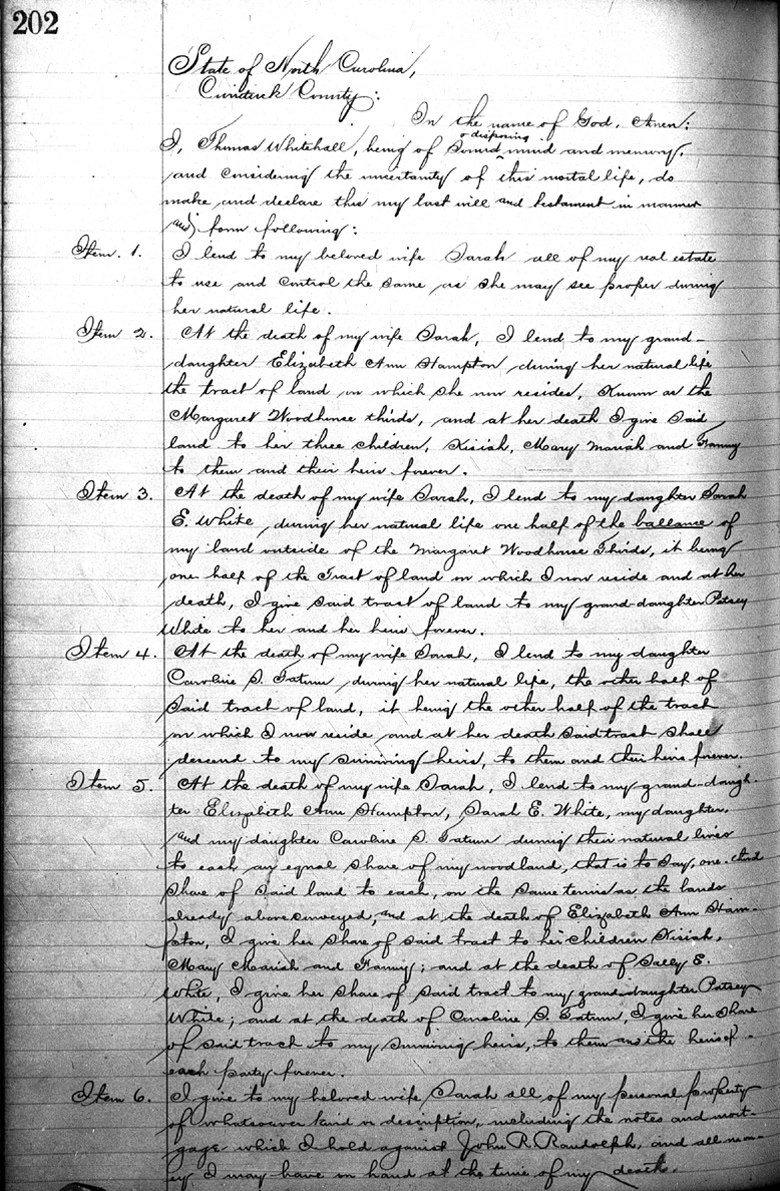 202
State of North Carolina,
Currituck County:
In the name of God, Amen:
I, Thomas Whitehall, being of sound & disposing mind and memory,
and considering the uncertainty of this mortal life, do
make and declare this my last will and testament in manner
and form following:
Item. 1. I lend to my beloved wife Sarah all of my real estate
to use and control the same as she may see proper during
her natural life.
Item 2. At the death of my wife Sarah, I lend to my grand-
daughter Elizabeth Ann Hampton during her natural life
the tract of land on which she now resides, Known as the
Margaret Woodhouse thirds, and at her death I give said
land to her three children, Kisiah, Mary Mariah and Fanny
to them and their heirs forever.
Item 3. At the death of my wife Sarah, I lend to my daughter Sarah
E. White, during her natural life one half of the ballance of
my land outside of the Margaret Woodhouse Thirds, it being
one half of the Tract of land on which I now reside and at her
death, I give said tract of land to my grand-daughter Patsey
White to her and her heirs forever.
Item 4. At the death of my wife Sarah, I lend to my daughter
Caroline S. Tatum during her natural life, the other half of
said tract of land, it being the other half of the track
on which I now reside and at her death said tract shall
descend to my surviving heirs, to them and their heirs forever.
Item 5. At the death of my wife Sarah, I lend to my grand-daugh-
ter Elizabeth Ann Hampton, Sarah E. White, my daughter,
and my daughter Caroline S. Tatum during their natural lives
to each an equal share of my woodland, that is to say, one-third
share of said land to each, on the same terms as the lands
already above conveyed; and at the death of Elizabeth Ann Ham-
pton, I give her share of said tract to her children Kisiah,
Mary Mariah and Fanny; and at the death of Sally E.
White, I give her share of said tract to my grand-daughter Patsey
White; and at the death of Caroline S. Tatum, I give her share
of said tract to my surviving heirs, to them and the heirs of
each party forever.
Item 6. I give to my beloved wife Sarah all of my personal property
of whatsoever kind or description, including the notes and mort-
gage which I hold against John R. Randolph, and all mon-
ey I may have on hand at the time of my death.